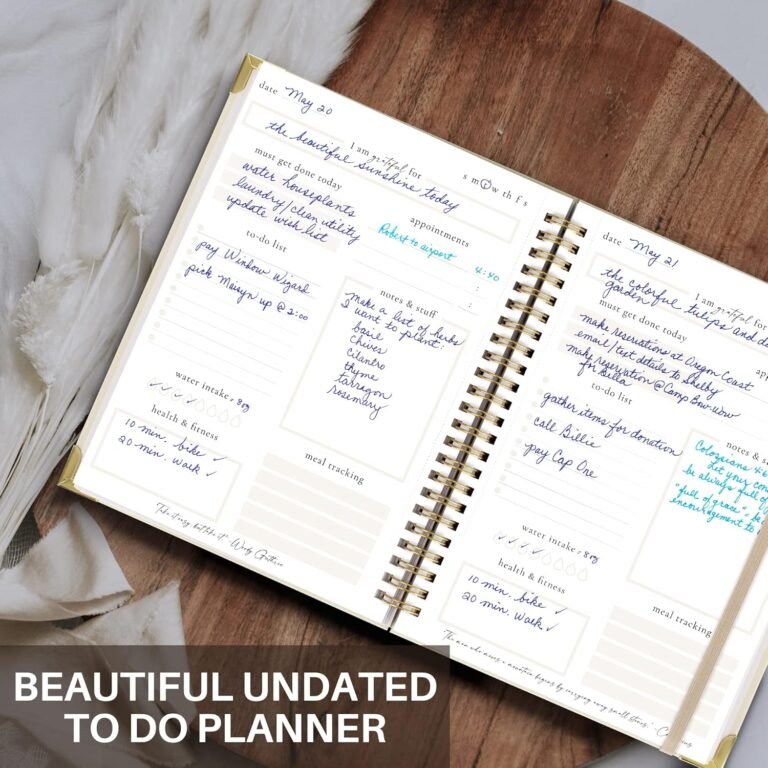 date May 20
I am grateful for
the beautiful sunshine today
s m t w th f s
must get done today
water houseplants
laundry/clean utility
update wish list
appointments
Robert to airport 4:40
:
:
to-do list
pay Window Wizard
pick Maisyn up @ 2:00
notes & stuff
make a list of herbs
I want to plant:
basil
chives
cilantro
thyme
tarragon
rosemary
water intake = 8 oz
health & fitness
10 min. bike ✓
20 min. walk ✓
meal tracking
"Take it easy, but take it" - Woody Guthrie
date May 21
I am grateful for
the colorful tulips and d
garden
must get done today
ap
make reservations at Oregon Coast
email/text details to Shelby
make reservation @ Camp Bow-Wow
for Billa
to-do list
gather items for donation
call Billie
pay Cap One
notes & s
Colossians 4:6
Let your con
be always full of
"full of grace", be
encouragement to
water intake = 8 oz
health & fitness
10 min. bike ✓
20 min. walk ✓
meal tracking
The man who moves a mountain begins by carrying away small stones. - C
BEAUTIFUL UNDATED
TO DO PLANNER